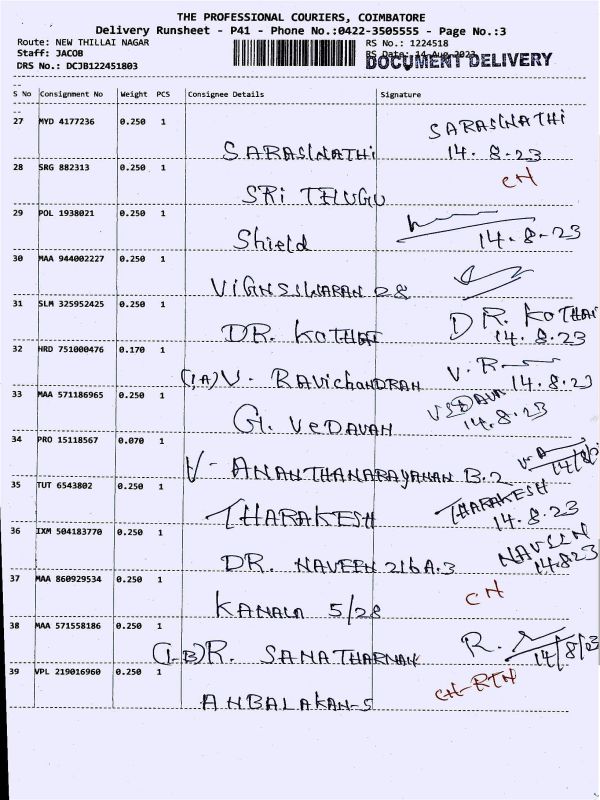 THE PROFESSIONAL COURIERS, COIMBATORE
Delivery Runsheet - P41 - Phone No.:0422-3505555 - Page No.:3
Route: NEW THILLAI NAGAR
RS No.: 1224518
Staff: JACOB
RS Date: 14 Aug 2023
DOCUMENT DELIVERY
DRS No.: DCJB122451803
S No Consignment No Weight PCS Consignee Details Signature
27 MYD 4177236 0.250 1 SARASWATHI SARASWATHI 14.8.23
28 SRG 882313 0.250 1 SRI TELUGU CH
29 POL 1938021 0.250 1 Shield 14.8.23
30 MAA 944002227 0.250 1 VIGNSIWARAN 28
31 SLM 325952425 0.250 1 DR. KOTHAI DR. KOTHAI 14.8.23
32 HRD 751000476 0.170 1 (1A) V. RAVICHANDRAN V. R. 14.8.23
33 MAA 571186965 0.250 1 G. VEDAVAN VEDAVAN 14.8.23
34 PRO 15118567 0.070 1 V. ANANTHANARAYANAN B.2 V.A 14/8/23
35 TUT 6543802 0.250 1 THARAKESH THARAKESH 14.8.23
36 IXM 504183770 0.250 1 DR. NAVEEN 216A.3 NAVEEN 14.8.23
37 MAA 860929534 0.250 1 KANALA 5/28 CH
38 MAA 571558186 0.250 1 (1-B) R. SANATHARNAN R. 14/8/23
39 VPL 219016960 0.250 1 ANBALAKAN-S CH-RTN